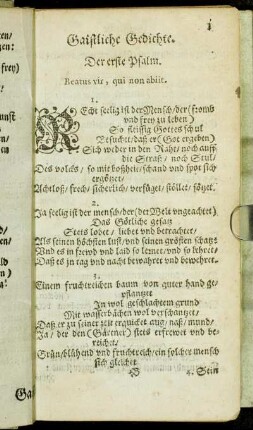 Gaistliche Gedichte.
Der erste Psalm.
Beatus vir, qui non abiit.
1.
REcht seelig ist der Mensch/der (fromb
vnd frey zu leben)
So fleissig Gottes schul
Besuchet/daß er (Got ergeben)
Sich weder in den Raht/noch auff
die Straß/noch Stul/
Des volcks/so mit boßheit/schand vnd spot sich
ergötzet/
Achtloß/frech/sicherlich/verfüget/stöllet/
2.
Ja seelig ist der mensch/der (der Welt vngeachtet)
Das Götliche gesatz
Stets lobet/liebet vnd betrachtet/
Als seinen höchsten lust/vnd seinen grösten schatz
Vnd es in frewd vnd laid so lernet/vnd so lehret/
Daß es zu tag vnd nacht bewahret vnd bewehret.
3.
Einem fruchtreichen baum von guter hand ge-
pflantzet
In wol geschlachtem grund
Mit wasserbächen wol verschantzet/
Daß er zu seiner zeit erquicket aug/naß/mund/
Ja/der den (Gärtner) stets erfrewet vnd be-
reichet/
Grün/blühend vnd fruchtreich/ein solcher mensch
sich gleichet
4. Sein